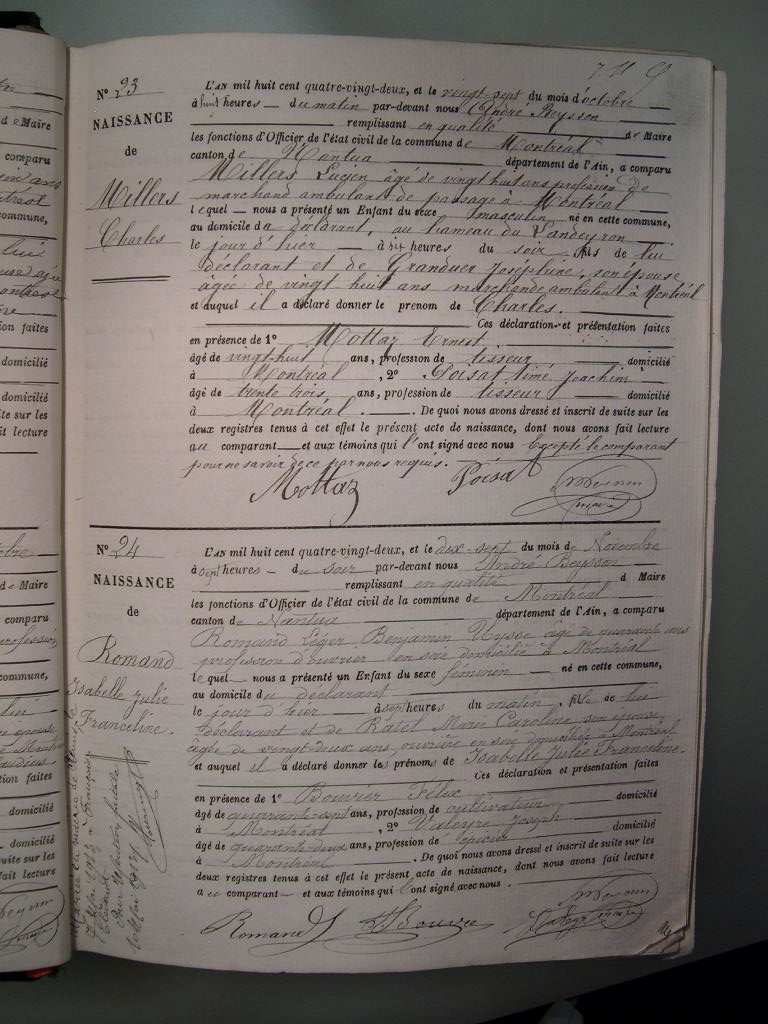 N° 23
NAISSANCE
de
Millers
Charles
L'AN mil huit cent quatre-vingt-deux, et le vingt sept du mois d'octobre
à huit heures du matin par-devant nous André Reysson
remplissant en qualité de Maire
les fonctions d'Officier de l'état civil de la commune de Montréal
canton de Nantua département de l'Ain, a comparu
Millers Lucien âgé de vingt huit ans profession de
marchand ambulant de passage à Montréal
lequel nous a présenté un Enfant du sexe masculin né en cette commune,
au domicile du déclarant, au hameau du Landeyron
le jour d'hier à six heures du soir fils de lui
déclarant et de Joséphine, son épouse
âgée de vingt huit ans marchande ambulant à Montréal
et auquel il a déclaré donner le prenom de Charles.
Ces déclaration et présentation faites
en présence de 1° Mottaz Ernest
âgé de vingt-huit ans, profession de tisseur domicilié
à Montréal, 2° Poisat Aimé Joachim
âgé de trente trois, ans, profession de tisseur domicilié
à Montréal. De quoi nous avons dressé et inscrit de suite sur les
deux registres tenus à cet effet le présent acte de naissance, dont nous avons fait lecture
au comparant et aux témoins qui l'ont signé avec nous Excepté le comparant
pour ne savoir de ce par nous requis.
Mottaz Poisat
N° 24
NAISSANCE
de
Romand
Isabelle Julie
Franceline.
L'AN mil huit cent quatre-vingt-deux, et le dix-sept du mois de Novembre
à sept heures du soir par-devant nous André Reysson
remplissant en qualité d Maire
les fonctions d'Officier de l'état civil de la commune de Montréal
canton de Nantua département de l'Ain, a comparu
Romand Léger Benjamin Ulysse âgé de quarante ans
profession d'ouvrier en soie domicilié à Montréal
lequel nous a présenté un Enfant du sexe féminin né en cette commune,
au domicile du déclarant
le jour d'hier à sept heures du matin, fille de lui
déclarant et de Ratel Marie Caroline son épouse
âgée de vingt-deux ans, ouvrière en soie domiciliée à Montréal
et auquel il a déclaré donner les prénoms de Isabelle Julie Franceline.
Ces déclaration et présentation faites
en présence de 1° Bouvier Félix
âgé de quarante-sept ans, profession de cultivateur domicilié
à Montréal, 2° Valeyre Joseph
âgé de quarante-deux ans, profession de domicilié
à Montréal. De quoi nous avons dressé et inscrit de suite sur les
deux registres tenus à cet effet le présent acte de naissance, dont nous avons fait lecture
au comparant et aux témoins qui l'ont signé avec nous.
Romand Bouvier